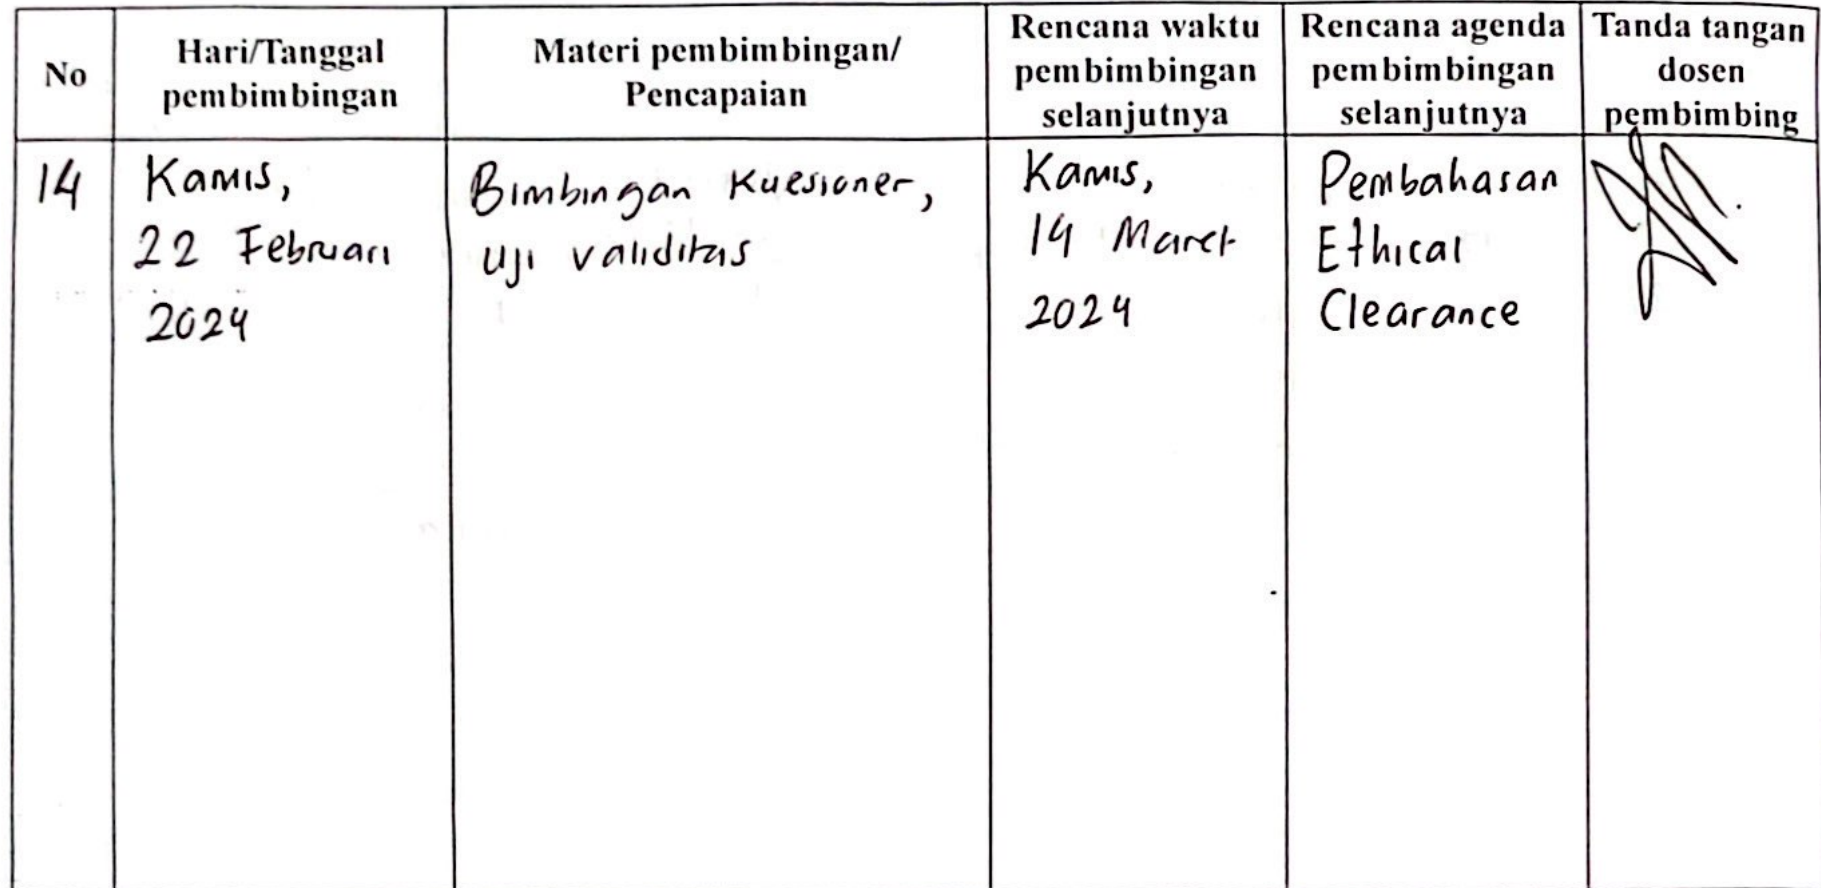 No
Hari/Tanggal
pembimbingan
Materi pembimbingan/
Pencapaian
Rencana waktu
pembimbingan
selanjutnya
Rencana agenda
pembimbingan
selanjutnya
Tanda tangan
dosen
pembimbing
14
Kamis,
22 Februari
2024
Bimbingan Kuesioner,
Uji validitas
Kamis,
14 Maret
2024
Pembahasan
Ethical
Clearance